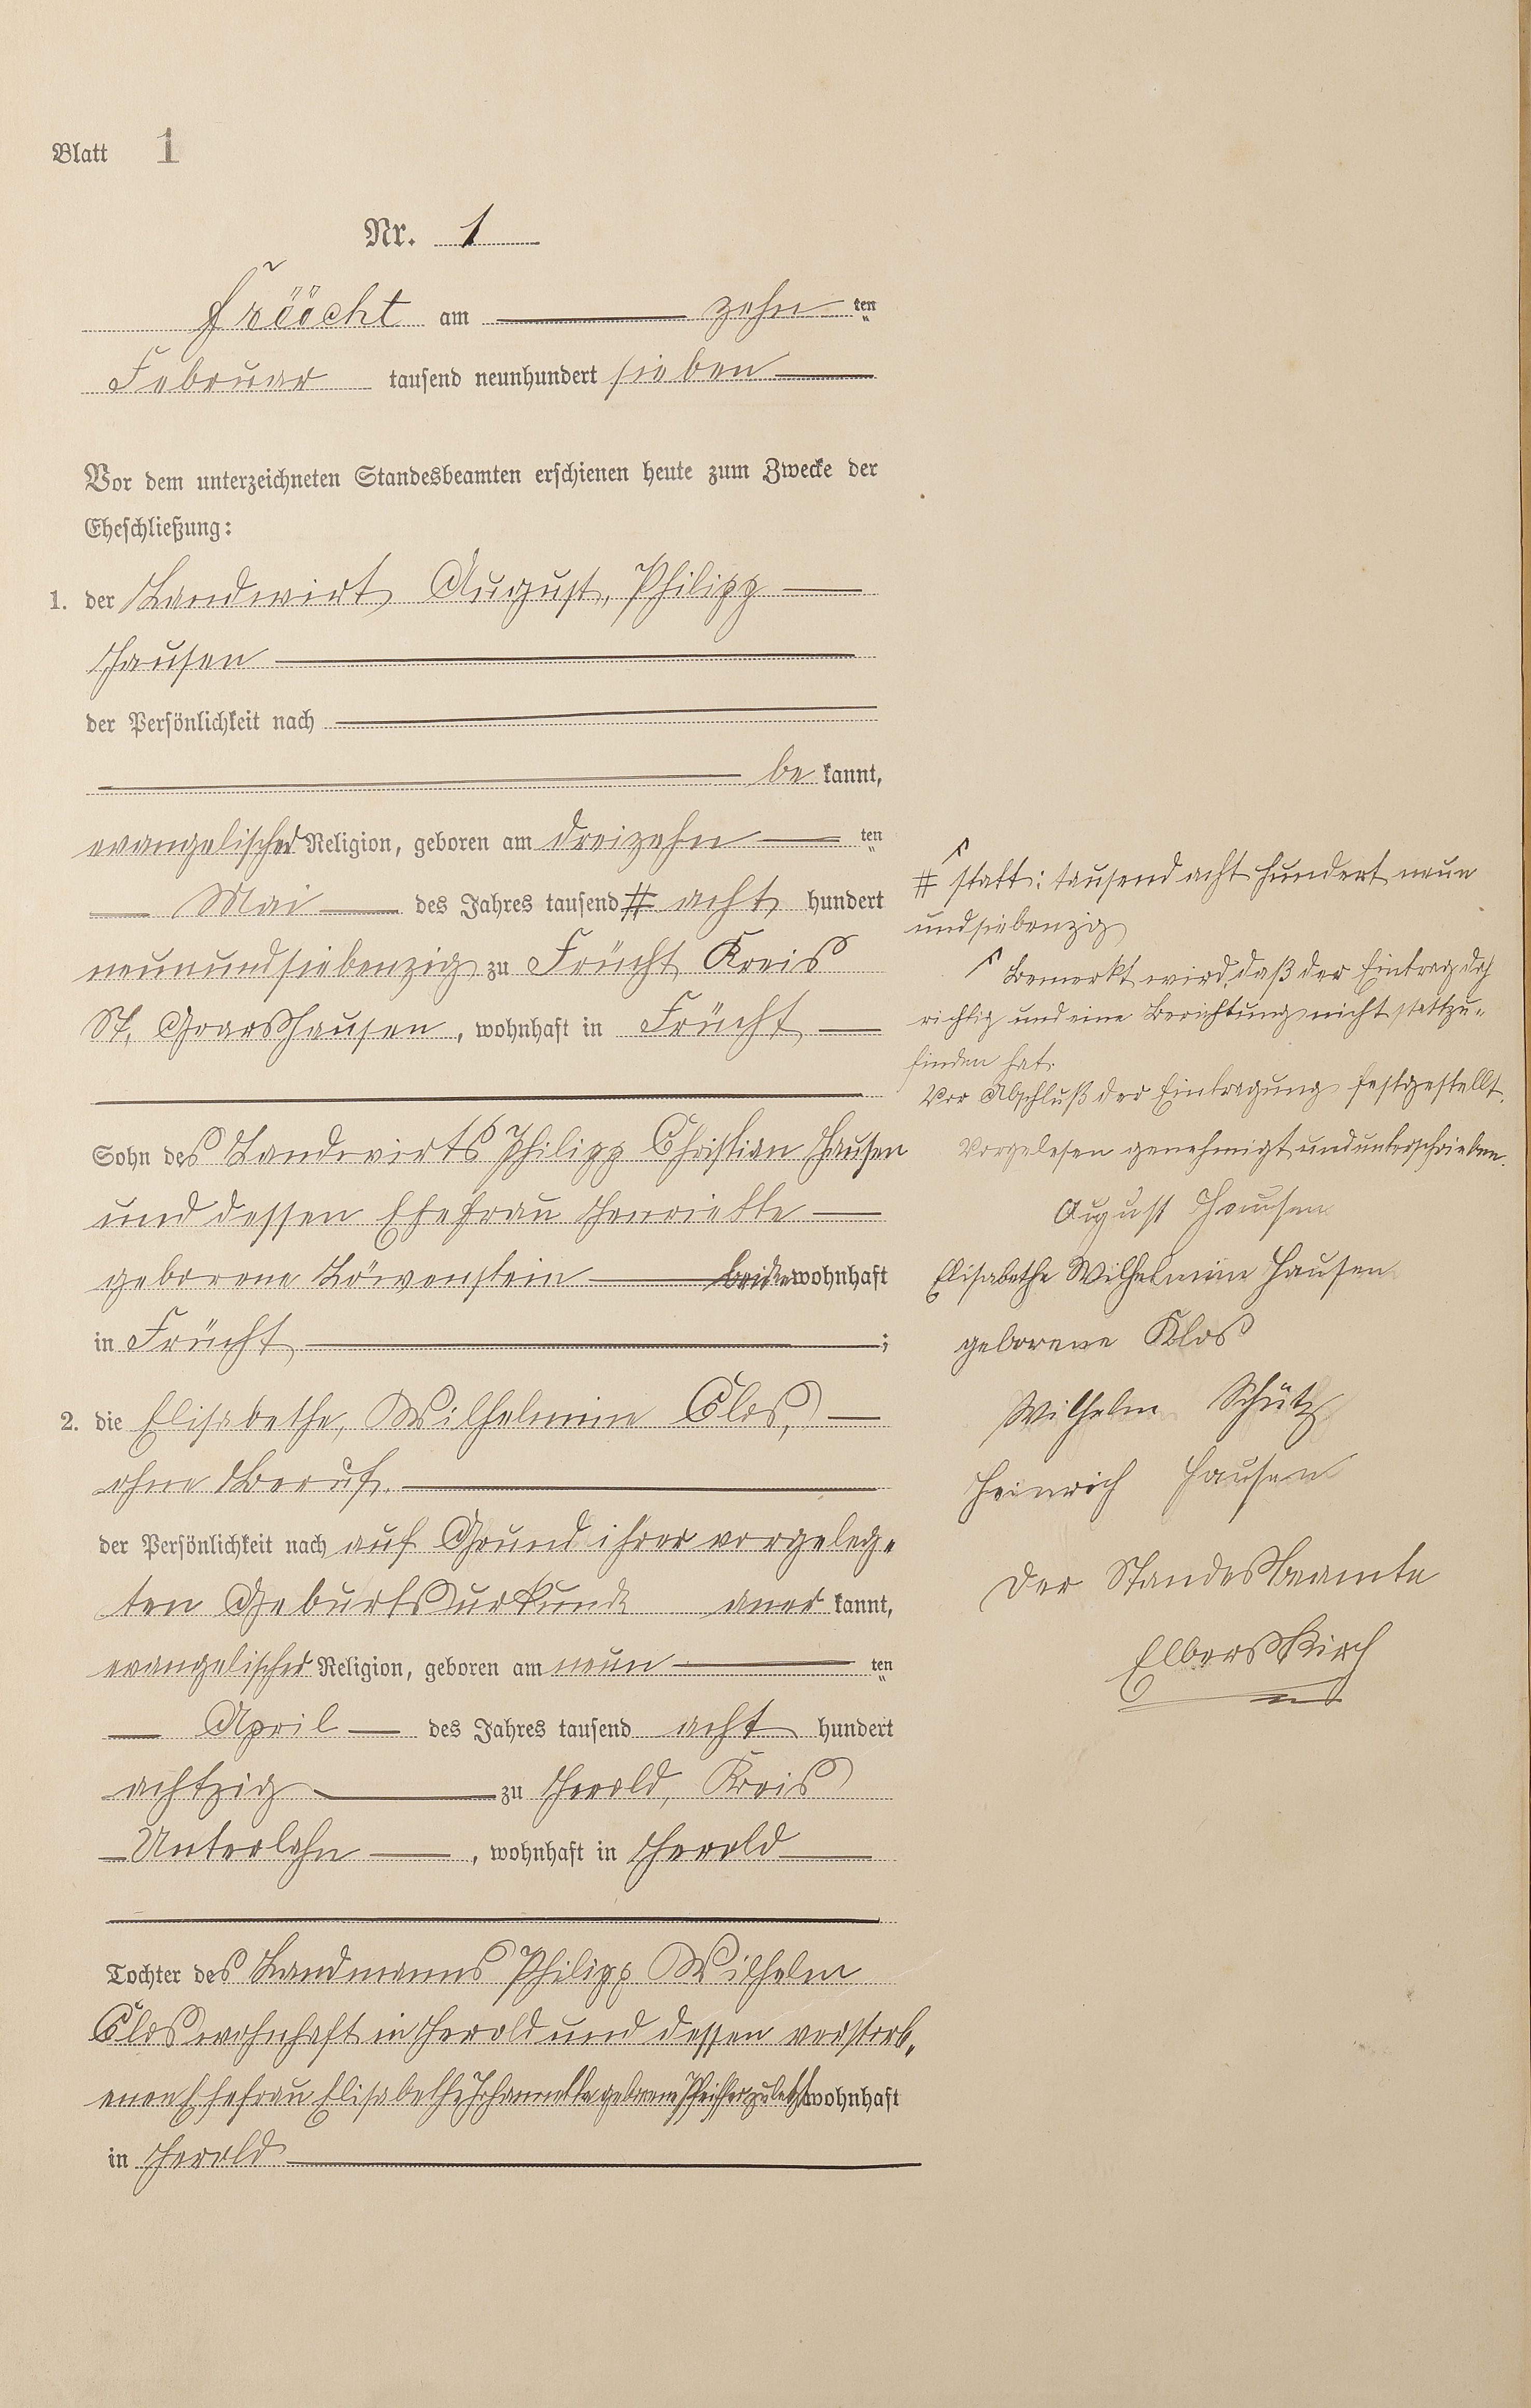 Blatt 1
Nr. 1
Fröcht am zehn ten
Februar tausend neunhundert sieben
Vor dem unterzeichneten Standesbeamten erschienen heute zum Zwecke der
Eheschließung:
1. der Landwirt August, Philipp
Hausen
der Persönlichkeit nach
be kannt,
evangelischer Religion, geboren am dreizehn ten
Mai des Jahres tausend # acht hundert
neunundsiebenzig zu Frücht Kreis
St. Goarshausen, wohnhaft in Frücht
Sohn des Landwirts Philipp Christian Hausen
und dessen Ehefrau Henriette
geborene Löwenstein beide wohnhaft
in Frücht ;
2. die Elisabethe, Wilhelmine Clos,
ohne Beruf.
der Persönlichkeit nach auf Grund ihrer vorgeleg-
ten Geburtsurkunde aner kannt,
evangelischer Religion, geboren am neun ten
April des Jahres tausend acht hundert
achtzig zu Herold, Kreis
Unterlahn, wohnhaft in Herold
Tochter des Landmanns Philipp Wilhelm
Clos wohnhaft in Herold und dessen verstorb-
enen Ehefrau Elisabethe Johannette geborene Pfeiffer zuletzt wohnhaft
in Herold
# statt: tausend acht hundert neun
undsiebenzig
Bemerkt wird, daß der Eintrag
richtig und eine Berichtung nicht stattzu-
finden hat.
Vor Abschluß der Eintragung festgestellt.
Vorgelesen genehmigt und unterschrieben.
August Hausen
Elisabethe Wilhelmine Hausen
geborene Klos
Wilhelm Schütz
Heinrich Hausen
Der Standesbeamte
Elberskirch